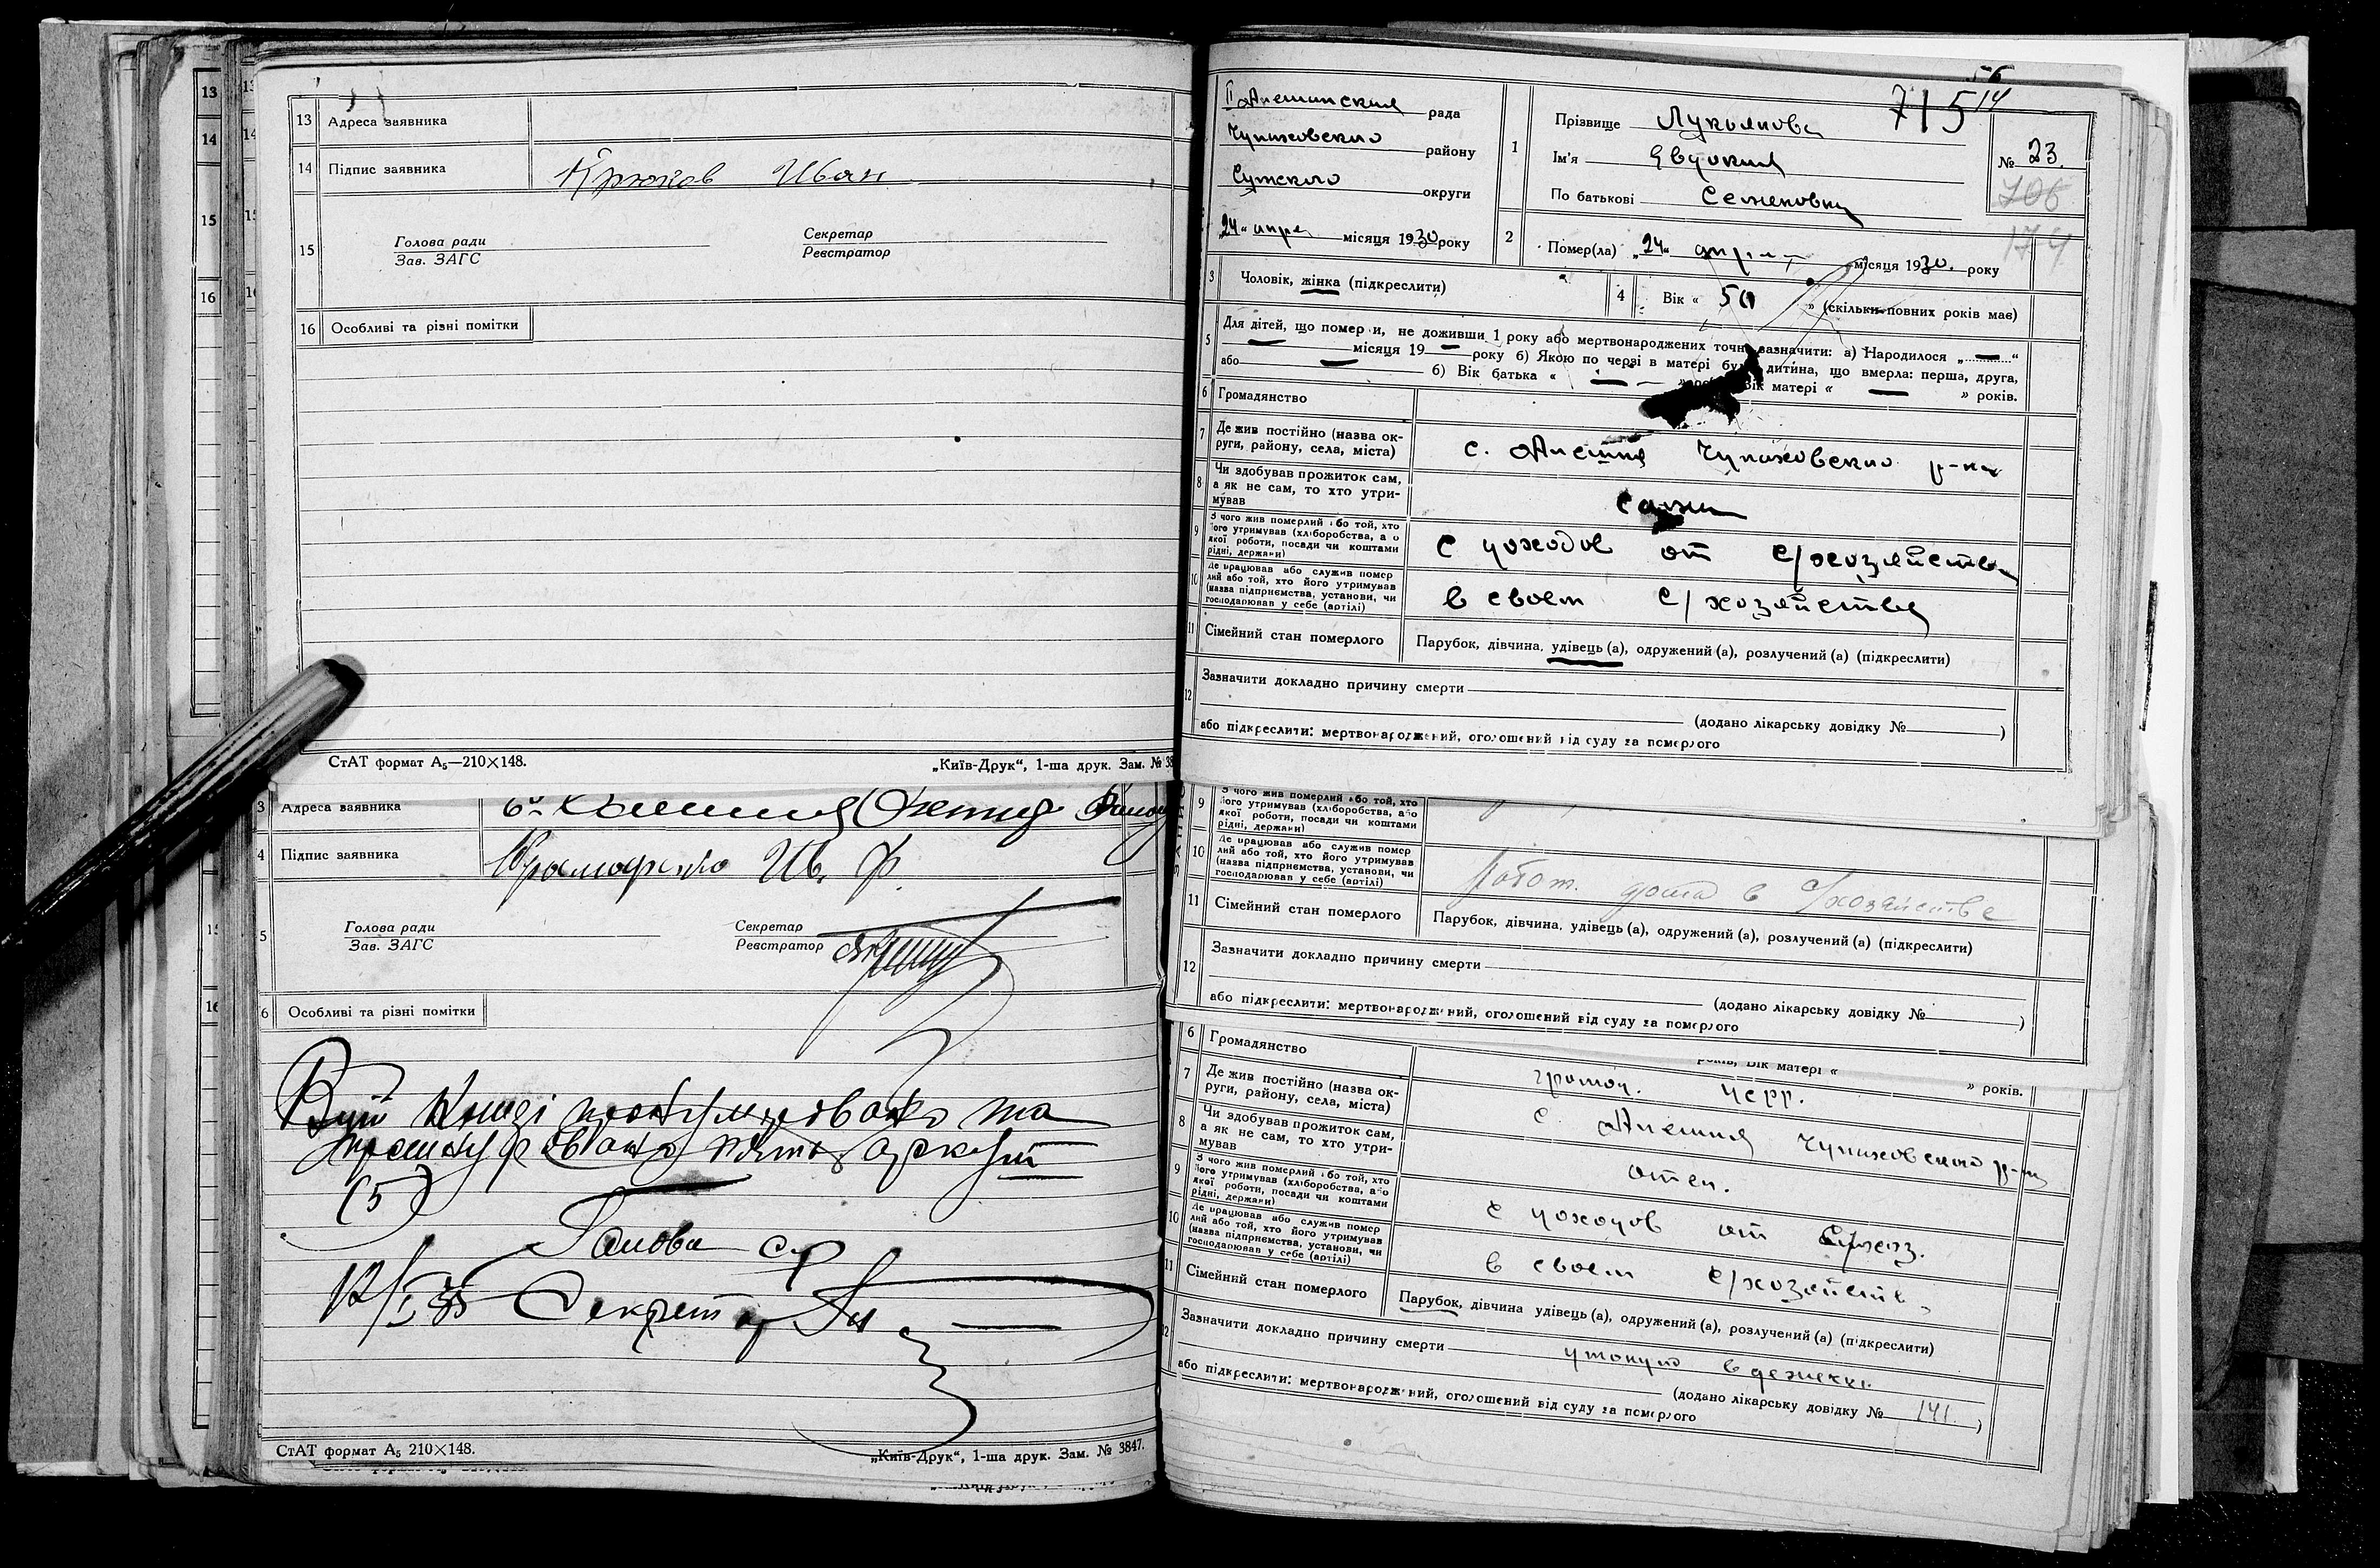 13 Адреса заявника
14 Підпис заявника Крюков Иван
15 Голова ради Секретар
Зав. ЗАГС Реєстратор
16 Особливі та різні помітки
СтАТ формат А₅—210✕148. „Київ-Друк“, 1-ша друк. Зам. № 38
3 Адреса заявника
4 Підпис заявника Ив. Ф.
5 Голова ради Секретар
Зав. ЗАГС Реєстратор
6 Особливі та різні помітки
книзі пронумеровано та
аркуш
(5)
Голова с/р
Секретар
СтАТ формат А₅ 210✕148. „Київ-Друк“, 1-ша друк. Зам. № 3847.
715
рада
района Чупаховского району
Сумского округи
„24“ апре місяця 1930 року
1 Прізвище Лукьянова
Ім'я Евдокия
По батькові Семеновна
№ 23.
706
174
2 Помер(ла) „24“ місяця 1930. року
3 Чоловік, жінка (підкреслити)
4 Вік « 50 » (скільки повних років має)
5 Для дітей, що померли, не доживши 1 року або мертвонароджених точно зазначити: а) Народилося „ — “
— місяця 19 — року б) Якою по черзі в матері була дитина, що вмерла: перша, друга,
або — б) Вік батька « — » Вік матері « — » років.
6 Громадянство
7 Де жив постійно (назва ок-
руги, району, села, міста) с. Алешня Чупаховского р-на
8 Чи здобував прожиток сам,
а як не сам, то хто утри-
мував сама
9 З чого жив померлий або той, хто
його утримував (хліборобства, або
якої роботи, посади чи коштами
рідні, держави) с доходов от с/хозяйства
10 Де працював або служив помер
лий або той, хто його утримував
(назва підприємства, установи, чи
господарював у себе (артілі) в своем с/хозяйстве
11 Сімейний стан померлого Парубок, дівчина, удівець (а), одружений (а), розлучений (а) (підкреслити)
12 Зазначити докладно причину смерти
(додано лікарську довідку № )
або підкреслити: мертвонароджений, оголошений від суду за померлого
9 З чого жив померлий або той, хто
його утримував (хліборобства, або
якої роботи, посади чи коштами
рідні, держави)
10 Де працював або служив помер
лий або той, хто його утримував
(назва підприємства, установи, чи
господарював у себе (артілі) работ. дома в с/хозяйстве
11 Сімейний стан померлого Парубок, дівчина, удівець (а), одружений (а), розлучений (а) (підкреслити)
12 Зазначити докладно причину смерти
(додано лікарську довідку № )
або підкреслити: мертвонароджений, оголошений від суду за померлого
років, Вік матері « » років.
6 Громадянство
7 Де жив постійно (назва ок-
руги, району, села, міста) с. Алешня Чупаховского р-на
8 Чи здобував прожиток сам,
а як не сам, то хто утри-
мував отец.
9 З чого жив померлий або той, хто
його утримував (хліборобства, або
якої роботи, посади чи коштами
рідні, держави) с доходов от с/хоз.
10 Де працював або служив помер
лий або той, хто його утримував
(назва підприємства, установи, чи
господарював у себе (артілі) в своем с/хозяйств
11 Сімейний стан померлого Парубок, дівчина удівець (а), одружений (а), розлучений (а) (підкреслити)
12 Зазначити докладно причину смерти утонул в
(додано лікарську довідку № 141. )
або підкреслити: мертвонароджений, оголошений від суду за померлого